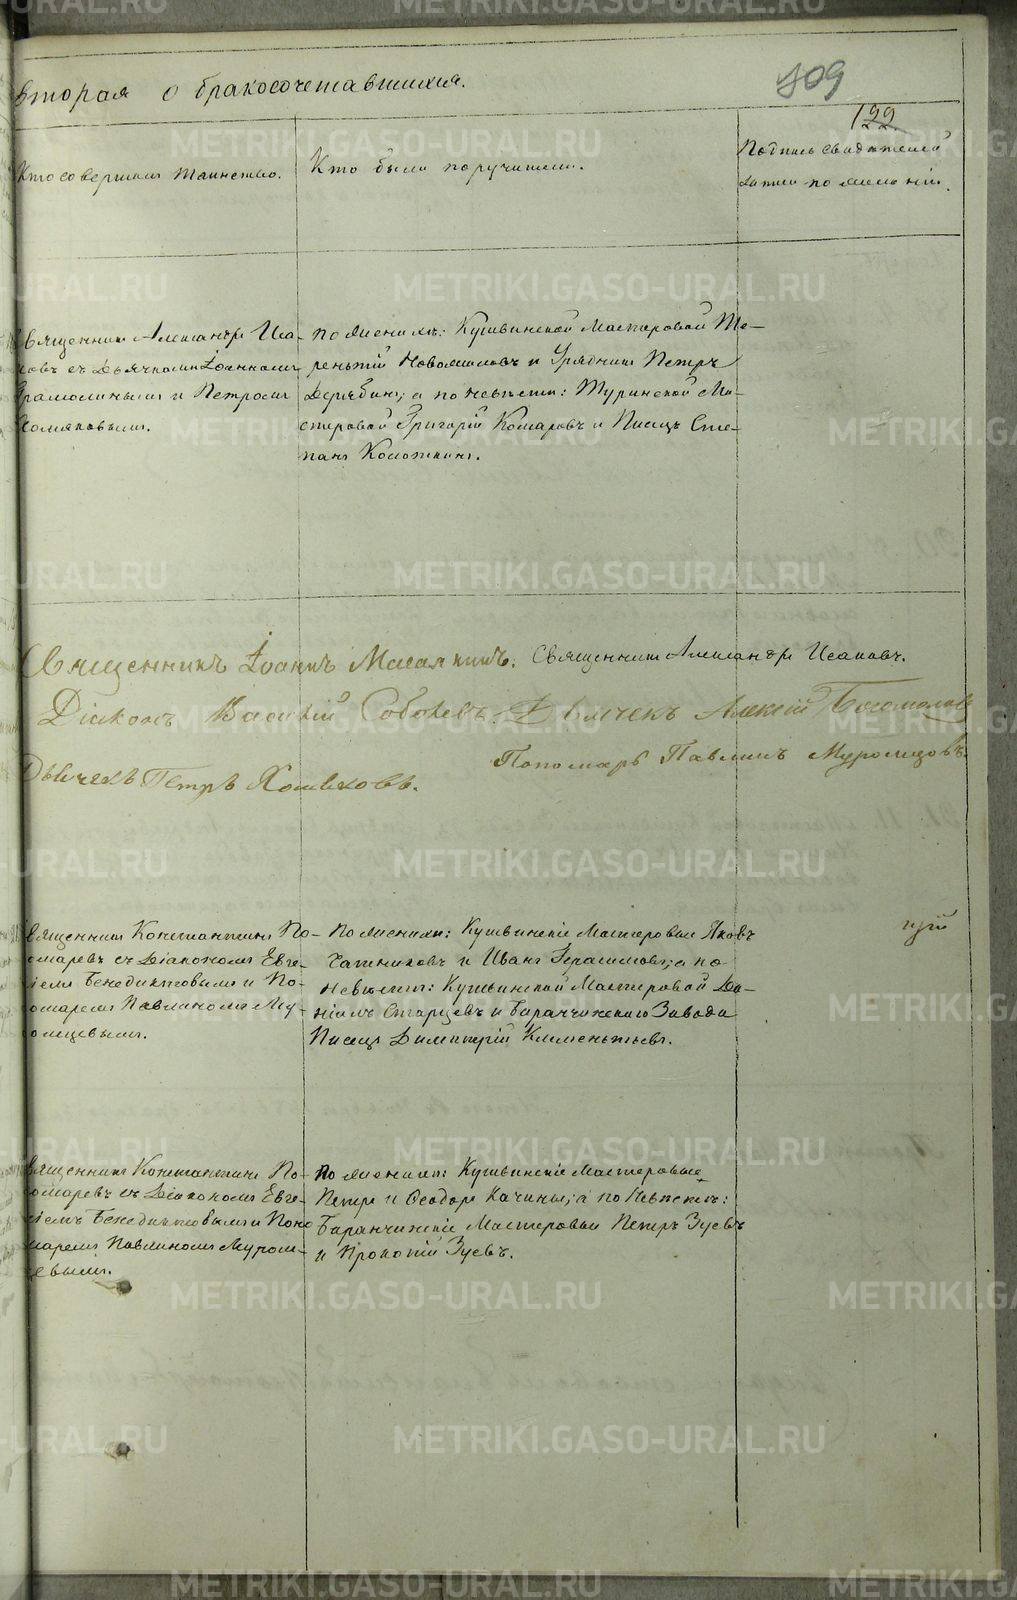 вторая о бракосочетавшихся.
109
122
Кто совершал таинство.
Кто были поручители.
Подпись свидетелей
записи по желанію.
Священник Александръ Иса-
ковъ съ Дьячками Іоанномъ
и Петромъ
Хомяковымъ.
По женихѣ: Кушвинской Мастеровой Те-
рентій Новожиловъ и Урядник Петръ
Дерябинъ; а по невѣстѣ: Туринской Ма-
стеровой Григорій Комаровъ и Писецъ Сте-
панъ
Священникъ Іоаннъ
Священник Александръ Исаковъ.
Діаконъ Василій Соболевъ.
Дьячекъ Алексій Богомолов
Дьячекъ Петръ Хомяковъ.
Пономарь Павлинъ Муромцовъ.
Священник Константинъ По-
номаревъ съ Діакономъ Евге-
ніемъ Бенедиктовымъ и По-
номаремъ Павлиномъ Му-
ромцевымъ.
По женихѣ: Кушвинскіе Мастеровые Яковъ
и Иванъ Герасимовъ; а по
невѣстѣ: Кушвинской Мастеровой Да-
ніилъ Старцевъ и Баранчинскаго Завода
Писецъ Димитрій Клементьевъ.
щій
Священник Константинъ По-
номаревъ съ Діакономъ Евге-
ніемъ Бенедиктовымъ и Поно
маремъ Павлиномъ Муром-
цевымъ.
По женихѣ: Кушвинскіе Мастеровые
Петръ и Ѳеодоръ Качины; а по Невѣстѣ:
Баранчинскіе Мастеровые Петръ Зуевъ
и Прокопій Зуевъ.
METRIKI.GASO-URAL.RU